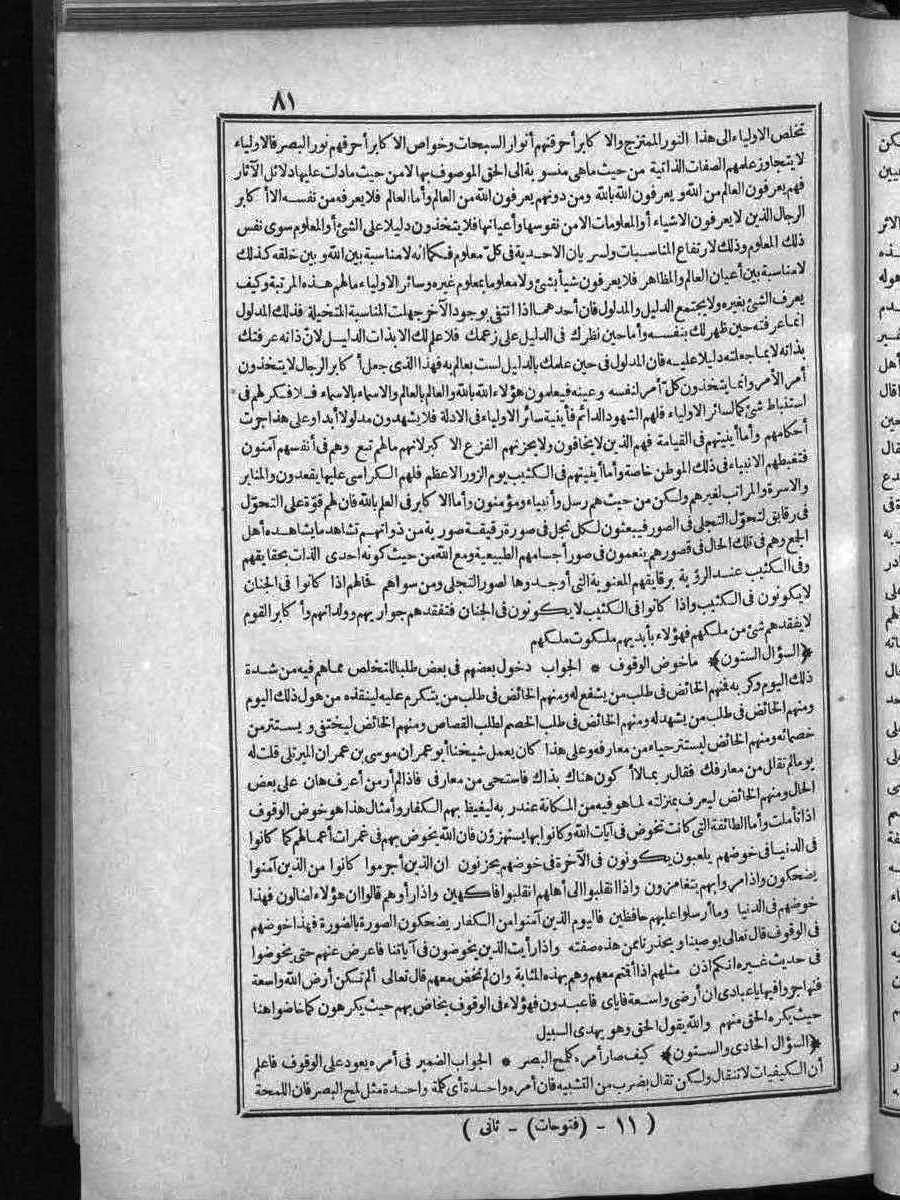 ٨١
تخلص الاولياء الى هذا النور الممتزج والا كابر أحرقتهم أنوار السبحات وخواص الا كابر أحرقهم نور البصر فالاولياء
لا يتجاوز علمهم الصفات الذاتية من حيث ما هى منسوبة الى الحق الموصوف بها لا من حيث ما دلت عليها دلائل الآثار
فهم يعرفون العالم من الله ويعرفون الله بالله ومن دونهم يعرفون الله من العالم وأما العالم فلا يعرفه من نفسه الا أ كابر
الرجال الذين لا يعرفون الاشياء أو المعلومات الا من نفوسها وأعيانها فلا يتخذون دليلا على الشئ أو المعلوم سوى نفس
ذلك المعلوم وذلك لارتفاع المناسبات ولسر يان الاحدية فى كلّ معلوم فكما انه لا مناسبة بين الله و بين خلقه كذلك
لا مناسبة بين أعيان العالم والمظاهر فلا يعرفون شيأ بشئ ولا معلوما بمعلوم غيره وسائر الاولياء ما لهم هذه المرتبة وكيف
يعرف الشئ بغيره ولا يجتمع الدليل والمدلول فان أحدهما اذا انتفى بوجود الآخر جهلت المناسبة المتخيلة فذلك المدلول
انما عرفته حين ظهر لك بنفسه وأما حين نظرك فى الدليل على زعمك فلا علم لك الا بذات الدليل لانّ ذاته عرفتك
بذاته لا بما جعلته دليلا عليه فان المدلول فى حين علمك بالدليل لست بعالم به فهذا الذى جعل أ كابر الرجال لا يتخذون
أمر الأمر وانما يتخذون كلّ أمر لنفسه وعينه فيعلمون هؤلاء الله بالله والعالم بالعالم والاسماء بالاسماء فلا فكر لهم فى
استنباط شئ كما لسائر الاولياء فلهم الشهود الدائم فأينية سائر الاولياء فى الادلة فلا يشهدون مدلولا أبدا وعلى هذا جرت
أحكامهم وأما أينيتهم فى القيامة فهم الذين لا يخافون ولا يحزنهم الفزع الا كبر لانهم ما لهم تبع وهم فى أنفسهم آمنون
فتغبطهم الانبياء فى ذلك الموطن خاصة وأما أينيتهم فى الكثيب يوم الزور الاعظم فلهم الكراسى عليها يقعدون والمنابر
والاسرة والمراتب لغيرهم ولكن من حيث هم رسل وأنبياء ومؤمنون وأما الا كابر فى العلم بالله فان لهم قوّة على التحوّل
فى رقايق لتحوّل التجلى فى الصور فيبعثون لكل تجل فى صورة رقيقة صورية من ذواتهم تشاهد ما يشاهده أهل
الجمع وهم فى تلك الحال فى قصورهم ينعمون فى صور أجسامهم الطبيعية ومع الله من حيث كونه احدى الذات بحقايقهم
وفى الكثيب عند الرؤية برقايقهم المعنوية التى أوجدوها لصور التجلى ومن سواهم فحالهم اذا كانوا فى الجنان
لا يكونون فى الكثيب واذا كانوا فى الكثيب لا يكونون فى الجنان فتفقدهم جواريهم وولدانهم وأ كابر القوم
لا يفقدهم شئ من ملكهم فهؤلاء بأيديهم ملكوت ملكهم
﴿السؤال الستون﴾ ما خوض الوقوف * الجواب دخول بعضهم فى بعض طلبا للتخلص مما هم فيه من شدة
ذلك اليوم وكربه فمنهم الخائض فى طلب من يشفع له ومنهم الخائض فى طلب من يتكرم عليه لينقذه من هول ذلك اليوم
ومنهم الخائض فى طلب من يشهد له ومنهم الخائض فى طلب الخصم لطلب القصاص ومنهم الخائض ليختفى ويستتر من
خصمائه ومنهم الخائض ليستتر حياء من معارفه وعلى هذا كان يعمل شيخنا أبو عمران موسى بن عمران الميرتلى قلت له
يوما لم تقلل من معارفك فقال ربما لا أ كون هناك بذاك فاستحى من معارفى فاذا لم أر من أعرف هان على بعض
الحال ومنهم الخائض ليعرف بمنزلته لما هو فيه من المكانة عند ربه ليغيظ بهم الكفار وأمثال هذا هو خوض الوقوف
اذا تأملت وأما الطائفة التى كانت تخوض فى آيات الله وكانوا بها يستهزؤن فان الله يخوض بهم فى غمرات أعمالهم كما كانوا
فى الدنيا فى خوضهم يلعبون يكونون فى الآخرة فى خوضهم يحزنون ان الذين أجرموا كانوا من الذين آمنوا
يضحكون واذا مروا بهم يتغامزون واذا انقلبوا الى أهلهم انقلبوا فا كهين واذا رأوهم قالوا ان هؤلاء لضالون فهذا
خوضهم فى الدنيا وما أرسلوا عليهم حافظين فاليوم الذين آمنوا من الكفار يضحكون الصورة بالصورة فهذا خوضهم
فى الوقوف قال تعالى يوصينا ويحذرنا من هذه صفته واذا رأيت الذين يخوضون فى آياتنا فاعرض عنهم حتى يخوضوا
فى حديث غيره انكم اذن مثلهم اذا أقتم معهم وهم بهذه المثابة وان لم تخض معهم قال تعالى ألم تكن أرض الله واسعة
فتهاجروا فيها يا عبادى ان أرضى واسعة فاياى فاعبدون فهؤلاء فى الوقوف يخاض بهم حيث يكرهون كما خاضوا هنا
حيث يكره الحق منهم والله يقول الحق وهو يهدى السبيل
﴿السؤال الحادى والستون﴾ كيف صار أمره كلمح البصر * الجواب الضمير فى أمره يعود على الوقوف فاعلم
أن الكيفيات لا تنقال ولكن تقال بضرب من التشبيه فان أمره واحدة أى كلمة واحدة مثل لمح البصر فان اللمحة
( ١١ - (فتوحات) - ثانى )